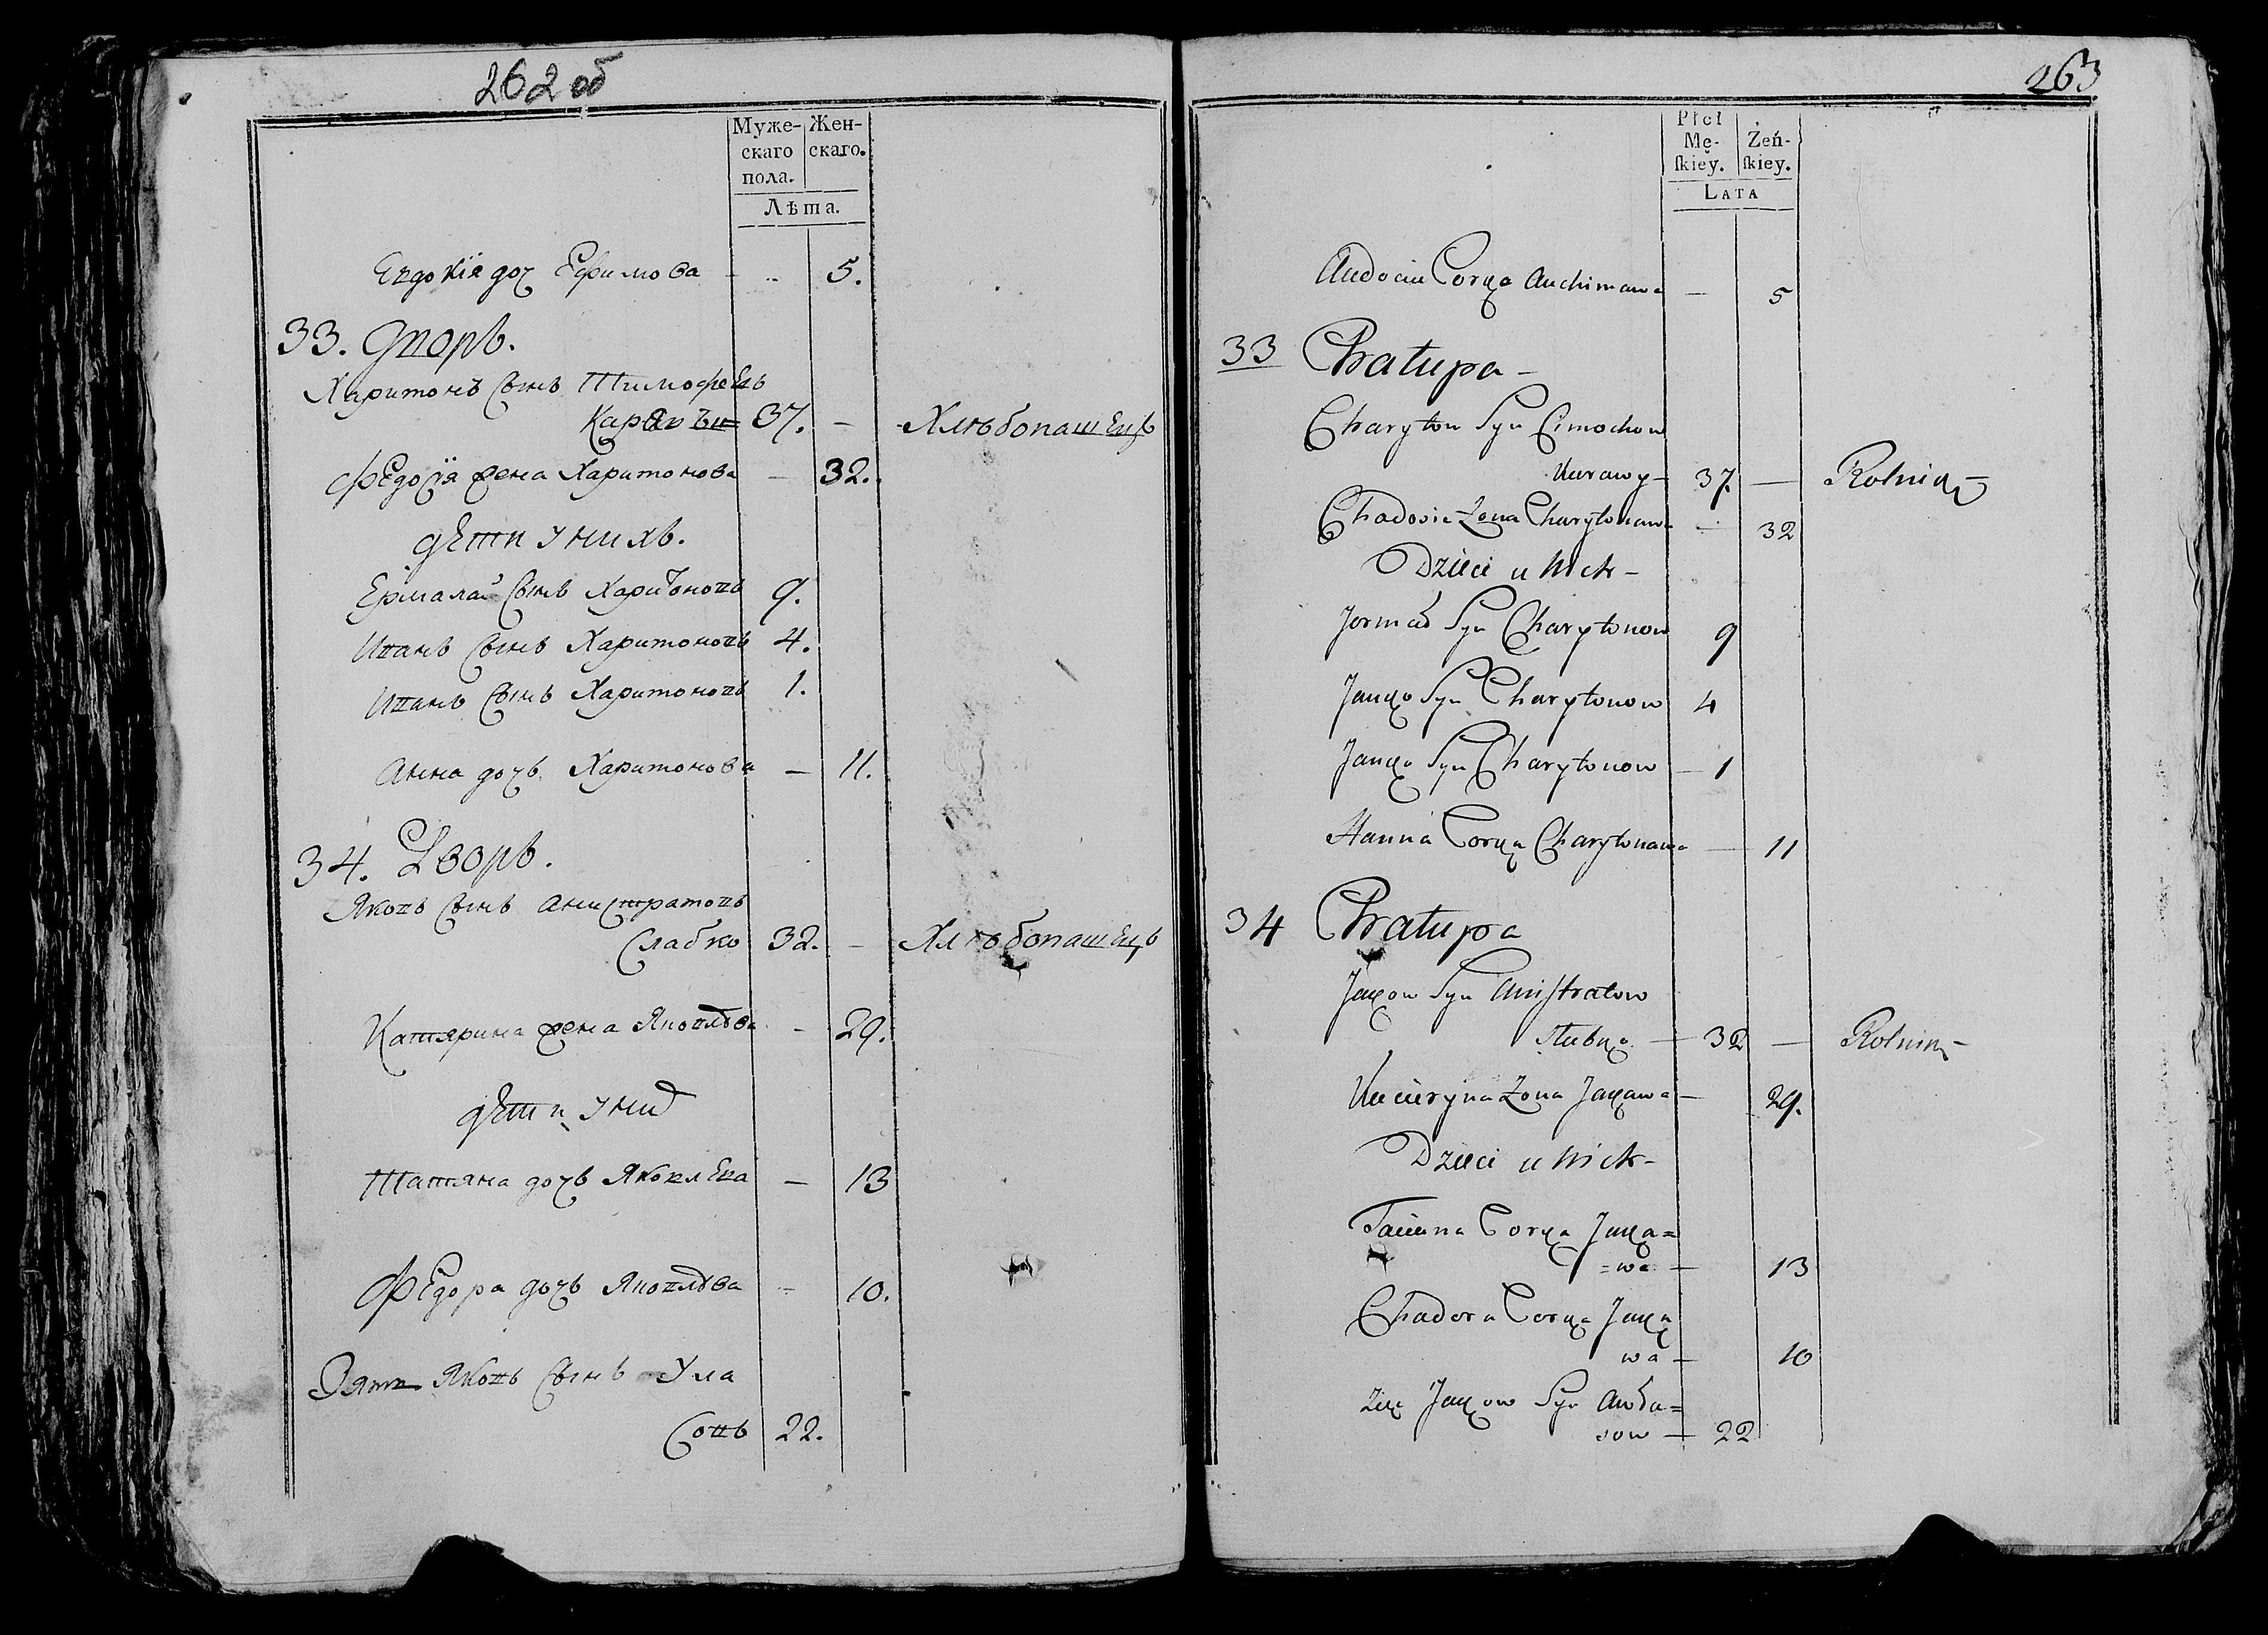 262 об
Муже- Жен-
скаго скаго.
пола.
Лѣта.
Евдокія доч Ефимова - - 5.
33. Дворъ.
Харитонъ Сынъ Тимофеевъ
37. - Хлѣбопашецъ
Федосія жена Харитонова - 32.
дети У нихъ.
Ермалай Сынъ Харитоновъ 9.
Иванъ Сынъ Харитоновъ 4.
Иванъ Сынъ Харитоновъ 1.
Анна дочь Харитонова - 11.
34. Дворъ.
Яковъ Сынъ Анистратовъ
Слабко 32. - Хлѣбопашецъ
Катярина жена Яковлѣва - 29.
дети У них
Татяна дочь Яковлева - 13
Федора дочь Яковлѣва - 10.
Зять Яковъ Сынъ Ула
Совъ 22.
263
Płci
Mę- Żeń-
ſkiey. ſkiey.
LATA
Audocia Corka Auchimawa - 5
33 Chatupa -
Charyton Syn Cimochow
37. - Rolnik
Chadosia Zona Charytonawa - 32
Dzieci u nich -
Jermał Syn Charytonow 9
Janko Syn Charytonow 4
Janko Syn Charytonow - 1
Hanna Corka Charytonawa - 11
34 Chatupa
Jakow Syn Anistratow
Słabko - 32 - Rolnik -
Kaciaryna Zona Jakawa - 29.
Dzieci u nich -
Taciana Corka Jaka=
=wa - 13
Chadora Corka Jaka
wa - 10
Zięć Jakow Syn Auła=
sow - 22